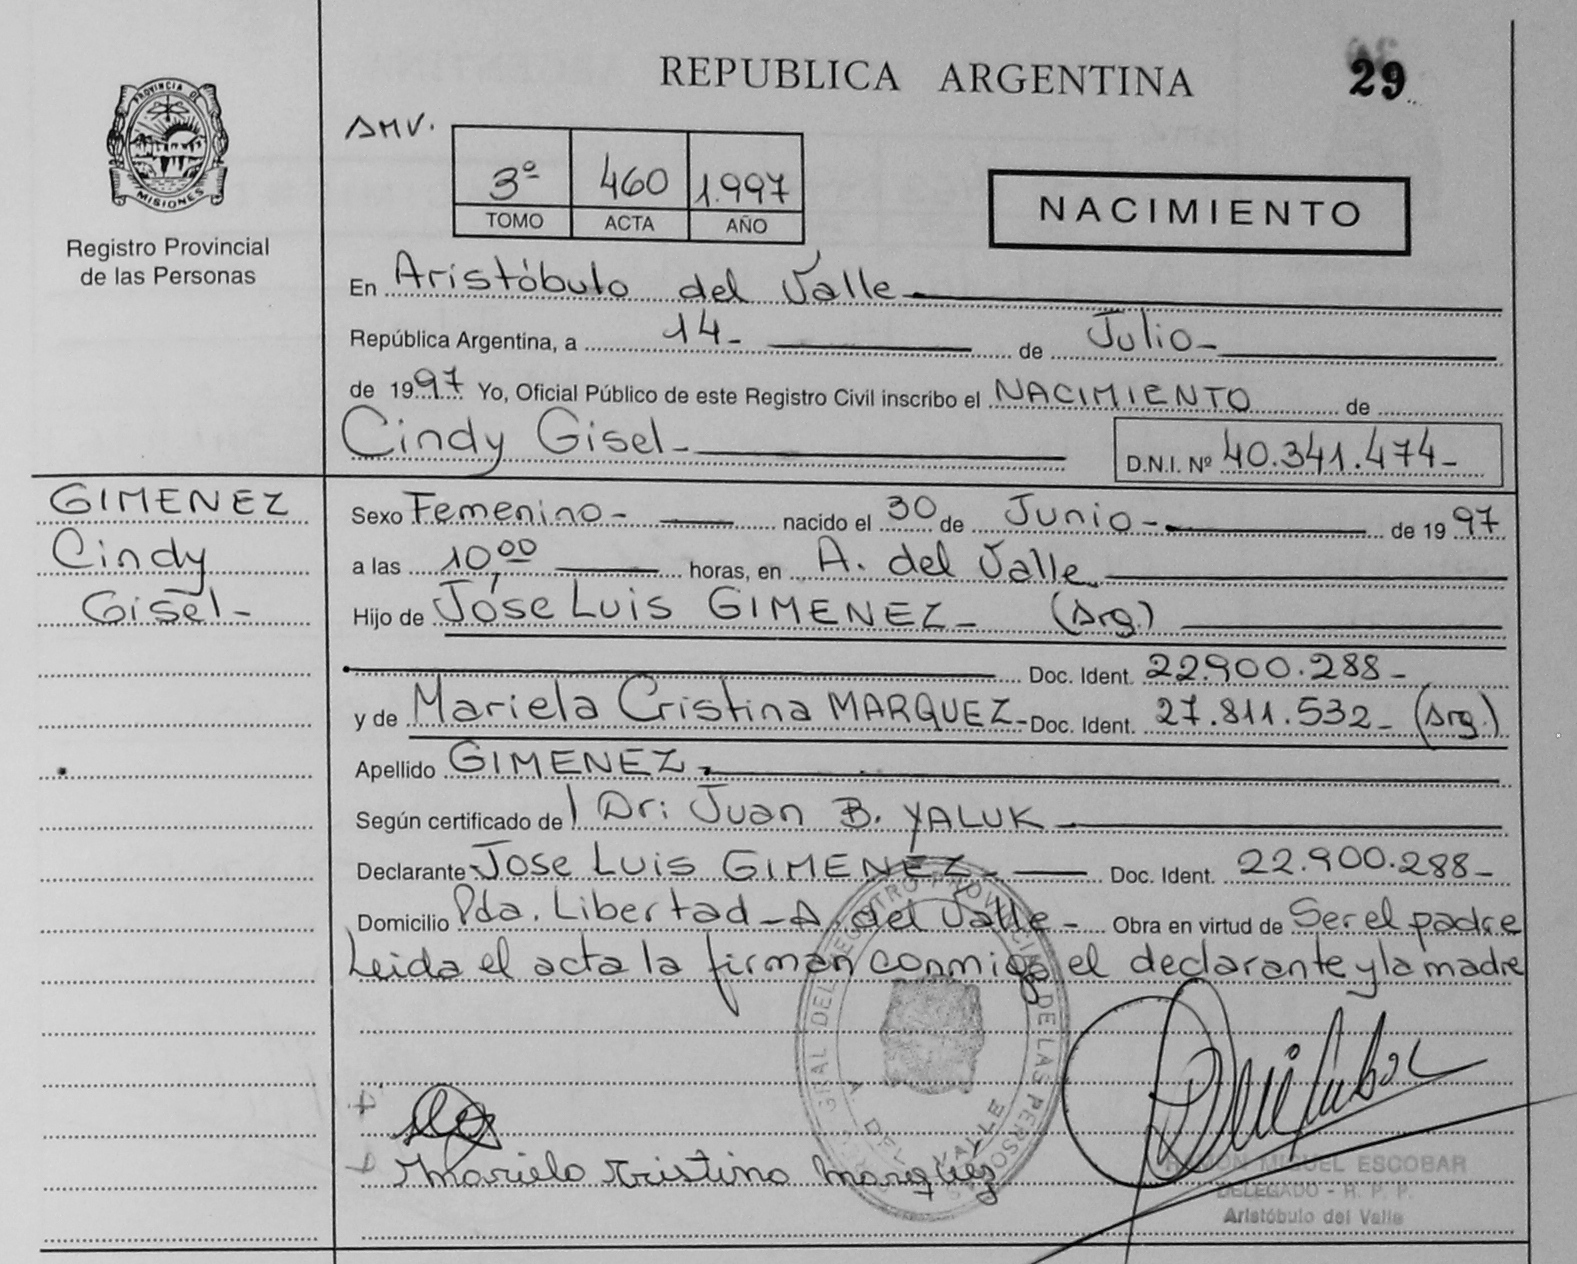 REPUBLICA ARGENTINA
29
PROVINCIA DE
MISIONES
Registro Provincial
de las Personas
AMV.
3º 460 1.997
TOMO ACTA AÑO
NACIMIENTO
En Aristóbulo del Valle
República Argentina, a 14- de Julio-
de 1997 Yo, Oficial Público de este Registro Civil inscribo el NACIMIENTO de
Cindy Gisel- D.N.I. Nº 40.341.474-
GIMENEZ
Cindy
Gisel-
Sexo Femenino- nacido el 30 de Junio- de 1997
a las 10,00 horas, en A. del Valle
Hijo de José Luis GIMENEZ- (Arg.)
Doc. Ident. 22.900.288-
y de Mariela Cristina MARQUEZ- Doc. Ident. 27.811.532- (Arg.)
Apellido GIMENEZ
Según certificado de Dr: Juan B. YALUK
Declarante Jose Luis GIMENEZ- Doc. Ident. 22.900.288-
Domicilio Pda. Libertad-A. del Valle- Obra en virtud de Ser el padre
Leida el acta la firman conmigo el declarante y la madre
GRAL DEL REGISTRO PROVINCIAL DE LAS PERSONAS
A. DEL VALLE
Mariela Cristina Marquez
RAMON MIGUEL ESCOBAR
DELEGADO - R. P. P.
Aristóbulo del Valle